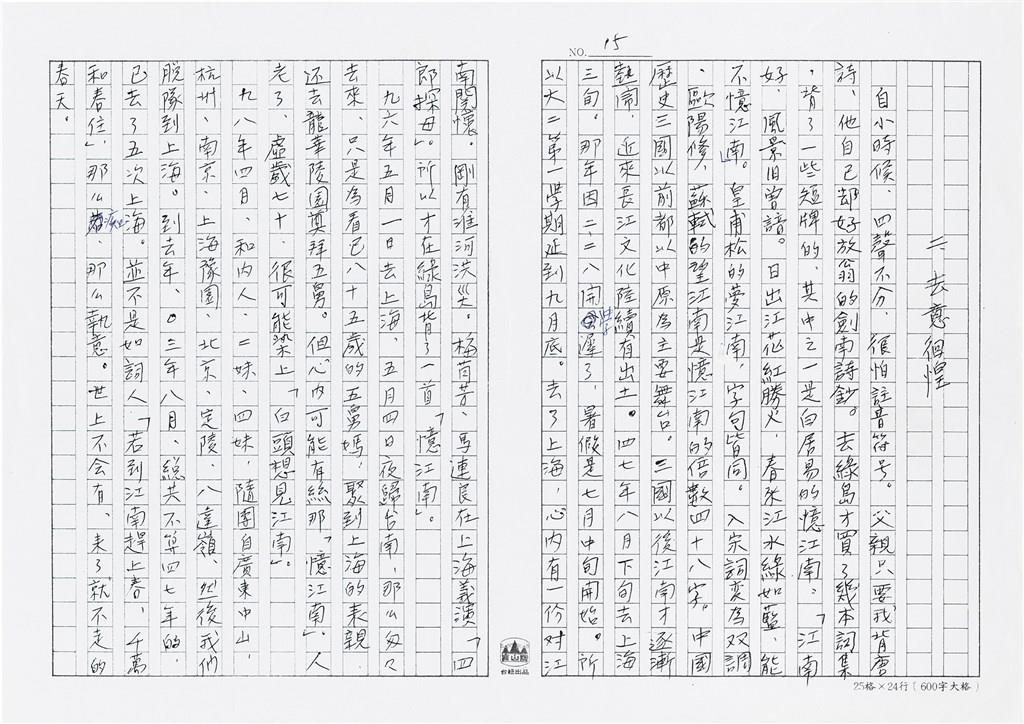 NO. 15
二、去意徊惶
自小時候、四聲不分、很怕註音符号。父親只要我背唐
詩、他自己却好放翁的劍南詩鈔。去綠島才買了幾本詞集
，背了一些短牌的、其中之一是白居易的憶江南。「江南
好、風景旧曾諳。日出江花紅勝火、春來江水綠如藍、能
不憶江南。」皇甫松的夢江南、字句皆同。入宋詞変為双調
、歐陽修、蘇軾的望江南是憶江南的倍數四十八字。中國
歷史三國以前都以中原為主要舞台。三國以後江南才逐漸
熱鬧、近來長江文化陸續有出土。四七年八月下旬去上海
三旬。那年因二、二八開學遲了、暑假是七月中旬開始。所
以大二第一學期延到九月底。去了上海、心內有一份对江
南関懷。剛有淮河洪災。梅蘭芳、馬連良在上海義演「四
郎探母」。所以才在綠島背了一首「憶江南」。
九六年五月一日去上海、五月四日夜歸台南、那么匆々
去來、只是為看已八十五歲的五舅媽、聚到上海的表親、
还去龍華陵园奠拜五舅。但心内可能有絲那「憶江南」、人
老了、虛歲七十、很可能染上「白頭想見江南」。
九八年四月、和内人、二妹、四妹、隨團自廣東中山、
杭州、南京、上海豫園、北京、定陵、八達嶺、然後我們
脫隊到上海。到去年、〇三年八月、総共不算四七年的，
已去了五次上海。並不是如詞人「若到江南趕上春、千萬
和春住」、那么痴、那么執意。世上不会有、来了就不走的
春天。
直山牌
台經出品
25格×24行（600字大格）